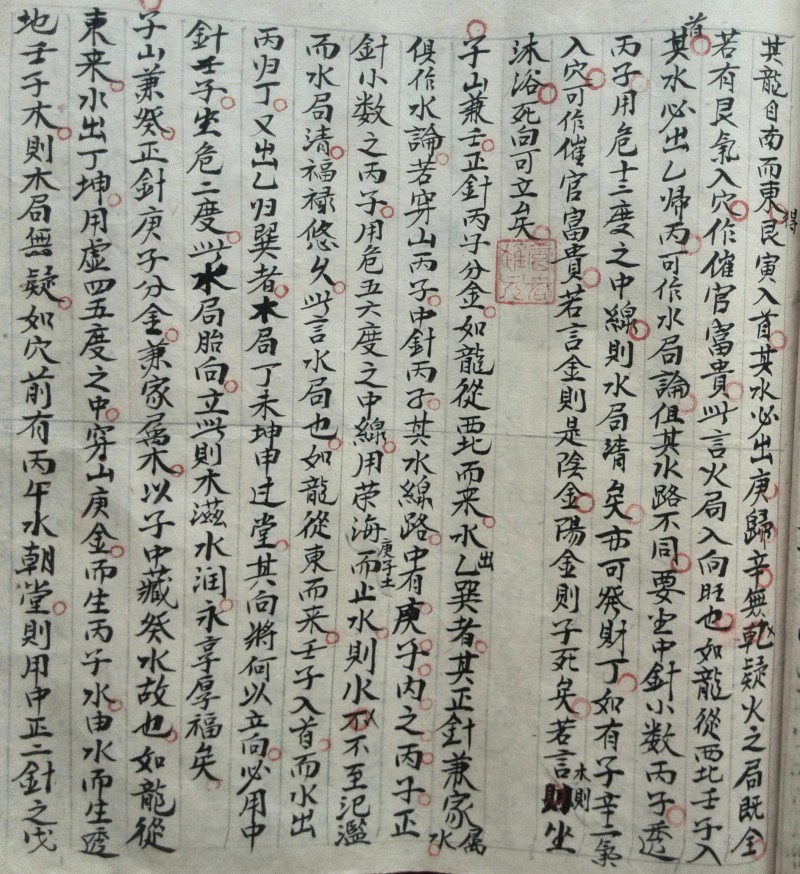 其龍自南而東得艮寅入首其水必出庚歸辛無乾疑火之局既全
若有艮氣入穴作催官富貴此言火局入向旺也如龍從西北壬子入
首其水必出乙歸丙可作水局論但其水路不同要坐中針小数丙子透
丙子用危十三度之中線則水局清矣亦可發財丁如有子辛二氣
入穴可作催官富貴若言金則是陰金陽金則子死矣若言木則坐
沐浴死向可立矣
子山兼壬正針丙子分金如龍從西北而来水出乙巽者其正針兼家属水
俱作水論若穿山丙子中針丙子其水線路中有庚子内之丙子正
針小数之丙子用危五六度之中線用荣海庚子土而止水則水不至氾濫
而水局清福禄悠久此言水局也如龍從東而来壬子入首而水出
丙归丁又出乙归巽者木局丁未坤申过堂其向將何以立向必用中
針壬子坐危二度此水局胎向立此則木滋水润永享厚福矣
子山兼癸正針庚子分金兼家属木以子中藏癸水故也如龍從
東来水出丁坤用虚四五度之中穿山庚金而生丙子水由水而生透
地壬子木則木局無疑如穴前有丙午水朝堂則用中正二針之戊